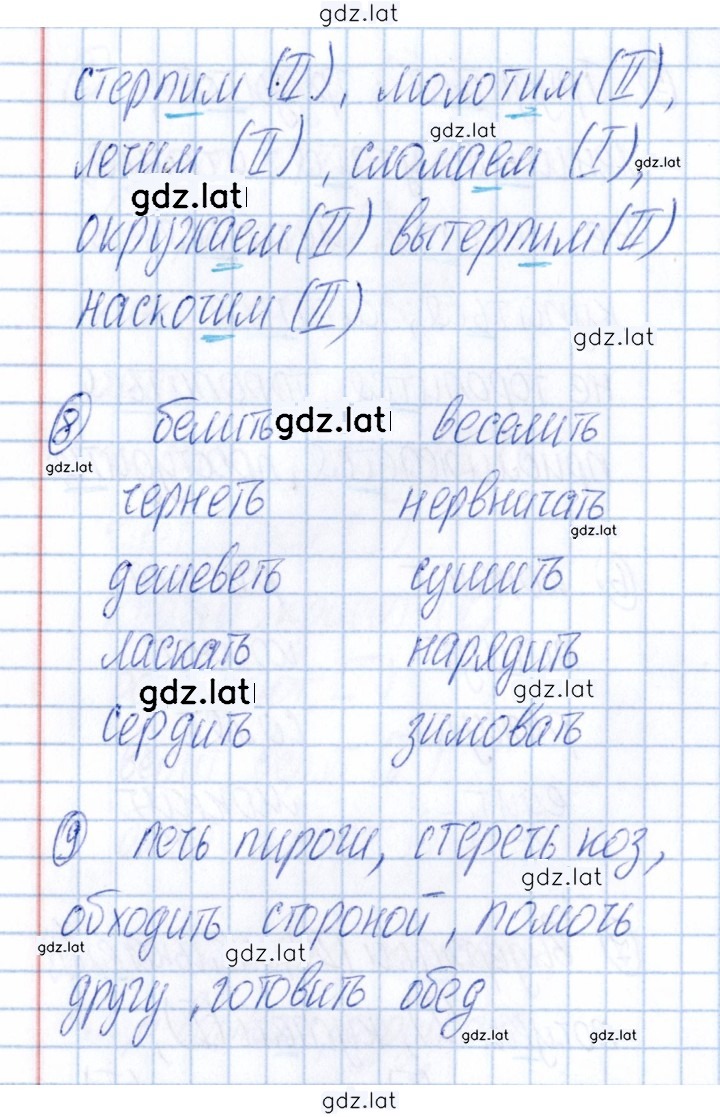 gdz.lat
стерпим (II), молотим (II),
gdz.lat
лечим (II), сломаем (I),
gdz.lat
gdz.lat
окружаем (II) вытерпим (II)
наскочим (II)
gdz.lat
8 белить gdz.lat веселить
gdz.lat
чернеть нервничать
gdz.lat
дешеветь сушить
ласкать нарядить
gdz.lat gdz.lat
сердить зимовать
9 печь пироги, стеречь коз,
gdz.lat
обходить стороной, помочь
gdz.lat gdz.lat
другу, готовить обед
gdz.lat gdz.lat
gdz.lat